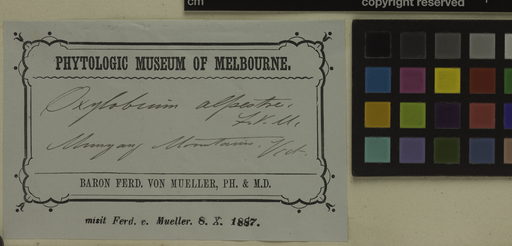 cm copyright reserved
PHYTOLOGIC MUSEUM OF MELBOURNE.
Oxylobium alpestre.
F.v.M.
Munyang Mountains. Vict.
BARON FERD. VON MUELLER, PH. & M.D.
misit Ferd. v. Mueller. 8. X. 1887.